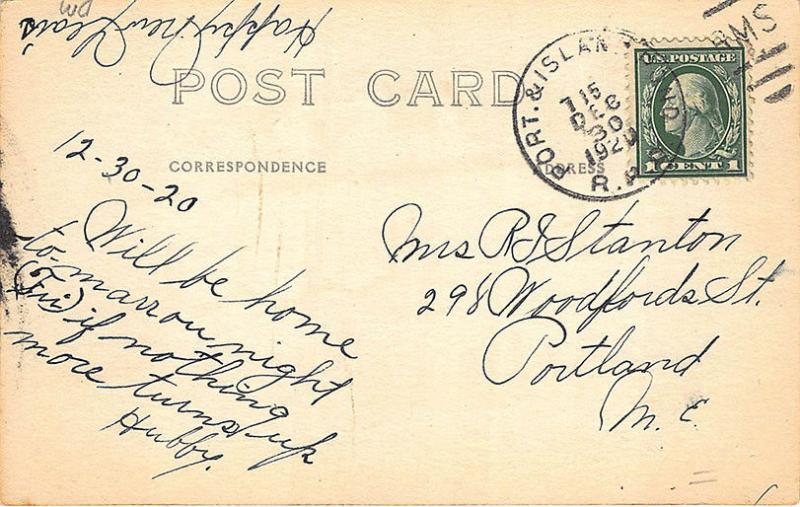 Happy New Years
POST CARD
CORRESPONDENCE
ADDRESS
PORT. & ISLAN
R.P.O.
7 15
DEC
30
1920
RMS
U.S. POSTAGE
1 CENT 1
12-30-20
Will be home
to-marrow night
(Fri) if nothing
more turns up
Hubby.
Mrs R J Stanton
298 Woodfords St.
Portland
M.E.